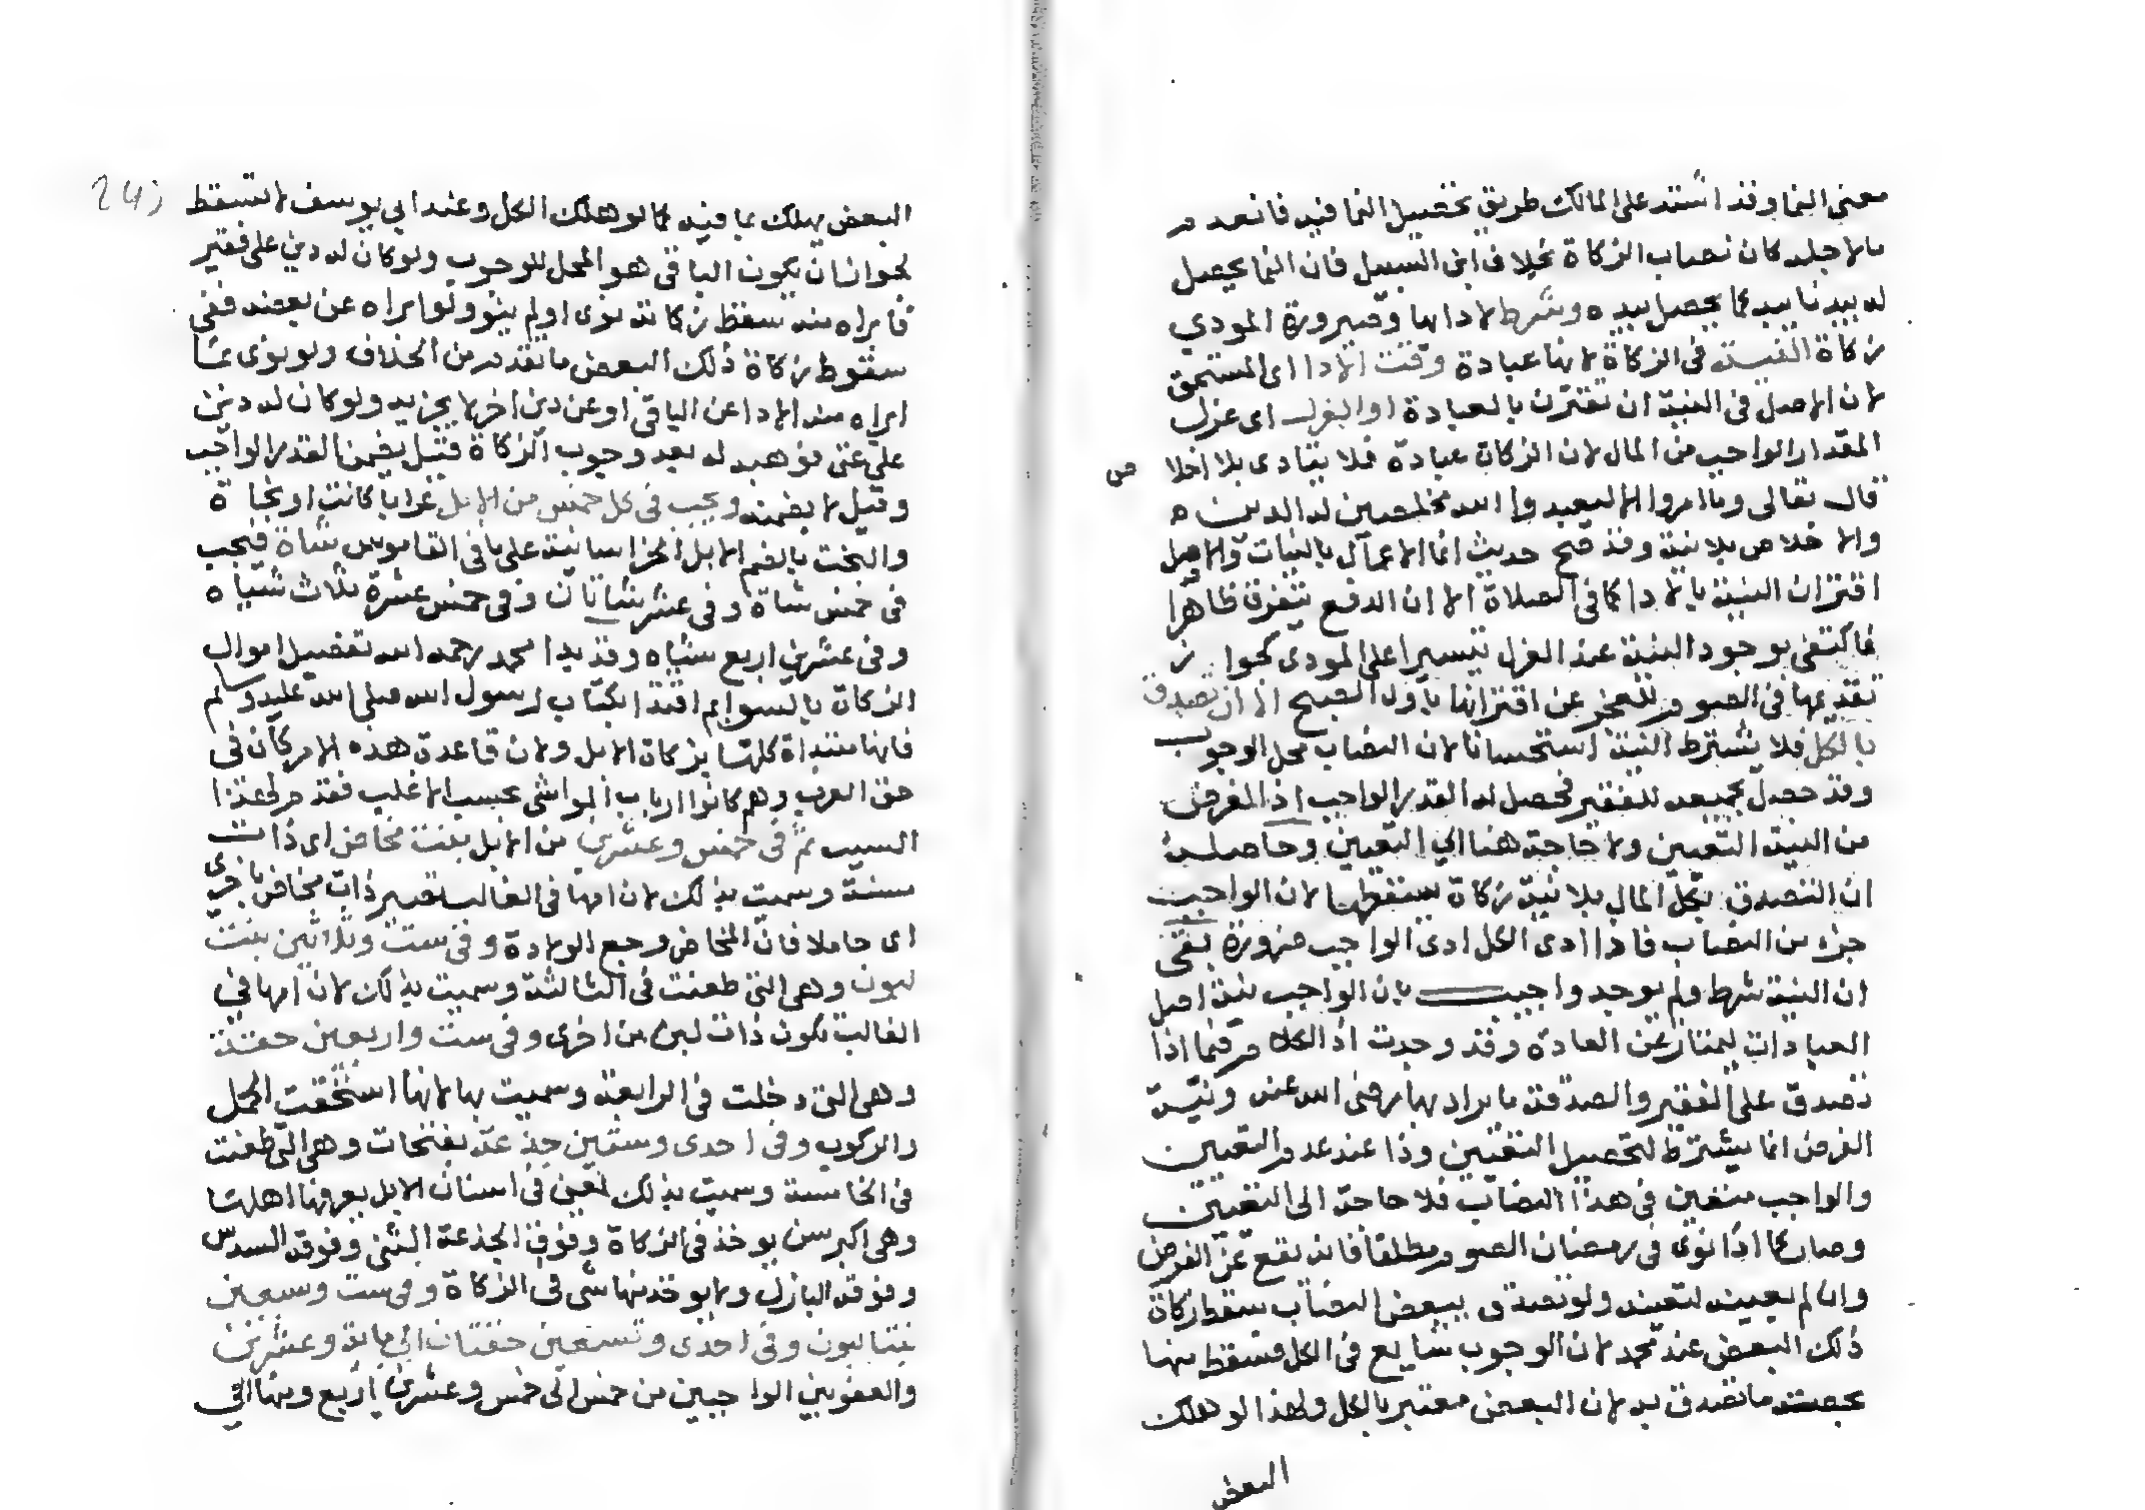 معنى النما وقد استند على المالك طريق تحصيل النما فيه فانعدم
ما لاجله كان نصاب الزكاة بخلاف ابن السبيل فان النما يحصل
له بيد نايبه كما يحصل بيده وشرط لادايها وصيرورة المودي
زكاة النية في الزكاة لانها عبادة وقت الادا اى المستحق
لان الاصل في النية ان تقترن بالعبادة او العزل اى عزل
المقدار الواجب من المال لان الزكاة عبادة فلا يتادى بلا اخلا ص
قال تعالى وما امروا الا ليعبدوا الله مخلصين له الدين
والاخلاص بلا نية وقد صح حديث انما الاعمال بالنيات والاصل
اقتران النية بالادا كما في الصلاة الا ان الدفع يتفرق ظاهرا
فاكتفى بوجود النية عند العزل تيسيرا على المودى كجواز
تقديمها في الصوم للعجز عن اقترانها باول الصبح الا ان تصدق
بالكل فلا يشترط النية استحسانا لان النصاب محل الوجوب
وقد حصل بجميعه للفقير فحصل له القدر الواجب اذ الغرض
من النية التعيين ولا حاجة هنا الي التعيين وحاصله
ان التصدق بكل المال بلا نية زكاة سقطها لان الواجب
جزء من النصاب فاذا ادى الكل ادى الواجب ضرورة بقى
ان النية شرط ولم يوجد واجيب بان الواجب نية اصل
العبادات ليمتاز عن العادة وقد وجدت اذ الكلام فيما اذا
تصدق على الفقير والصدقة ما يراد بها رضى الله عنه ونية
الفرض انما يشترط لتحصيل التعيين وذا عند عدم التعيين
والواجب متعين في هذا النصاب فلا حاجة الى التعيين
وصار كما اذا نوى في رمضان الصوم مطلقا فانه يقع عن الفرض
وان لم يعينه لتعينه ولو تصدق ببعض النصاب سقط زكاة
ذلك البعض عند محمد لان الوجوب شايع في الكل فسقط منها
بحصته ما تصدق به لان البعض معتبر بالكل ولهذا لو هلك
البعض
البعض يهلك بما فيه كما لو هلك الكل وعند ابي يوسف لا تسقط
لجواز ان يكون الباقي هو المحل للوجوب ولو كان له دين على فقير
فابراه منه سقط زكاته نوى او لم ينو ولو ابراه عن بعضه ففي
سقوط زكاة ذلك البعض ما تقدم من الخلاف ولو نوى بما
ابراه منه الادا عن الباقي او عن دين اخر لا يجزيه ولو كان له دين
على غنى فوهبه له بعد وجوب الزكاة قيل يضمن القدر الواجب
وقيل لا يضمنه ويجب في كل خمس من الابل عرابا كانت او بخاتة
والبخت بالضم الابل الخراسانية على ما في القاموس شاة فيجب
في خمس شاة وفي عشر شاتان وفي خمس عشرة ثلاث شياه
وفي عشرين اربع شياه وقد بدا محمد رحمه الله تفصيل اموال
الزكاة بالسوايم اقتدا بكتاب رسول الله صلى الله عليه وسلم
فانها مبتداة كلها بزكاة الابل ولان قاعدة هذه الامر كان في
حق العرب وهم كانوا ارباب المواشي بحسب الاغلب فقدم لهذا
السبب ثم في خمس وعشرين من الابل بنت مخاض اى ذات
سنة وسميت بذلك لان امها في الغالب تصير ذات مخاض باخرى
اى حاملا فان المخاض وجع الولادة وفي ست وثلاثين بنت
لبون وهي التي طعنت في الثالثة وسميت بذلك لان امها في
الغالب تكون ذات لبن من اخرى وفي ست واربعين حقة
وهي التي دخلت في الرابعة وسميت بها لانها استحقت الحمل
والركوب وفي احدى وستين جذعة بفتحات وهي التي طعنت
في الخامسة وسميت بذلك لمعنى في اسنان الابل يعرفها اهلها
وهي اكبر سن يوخذ في الزكاة وفوق الجذعة الثني وفوقه السدس
وفوقه البازل ولا يوخذ منها شي في الزكاة وفي ست وسبعين
بنتا لبون وفي احدى وتسعين حقتان الى ماية وعشرين
والعفو بين الواجبين من خمس الى خمس وعشرين اربع ومنها الى